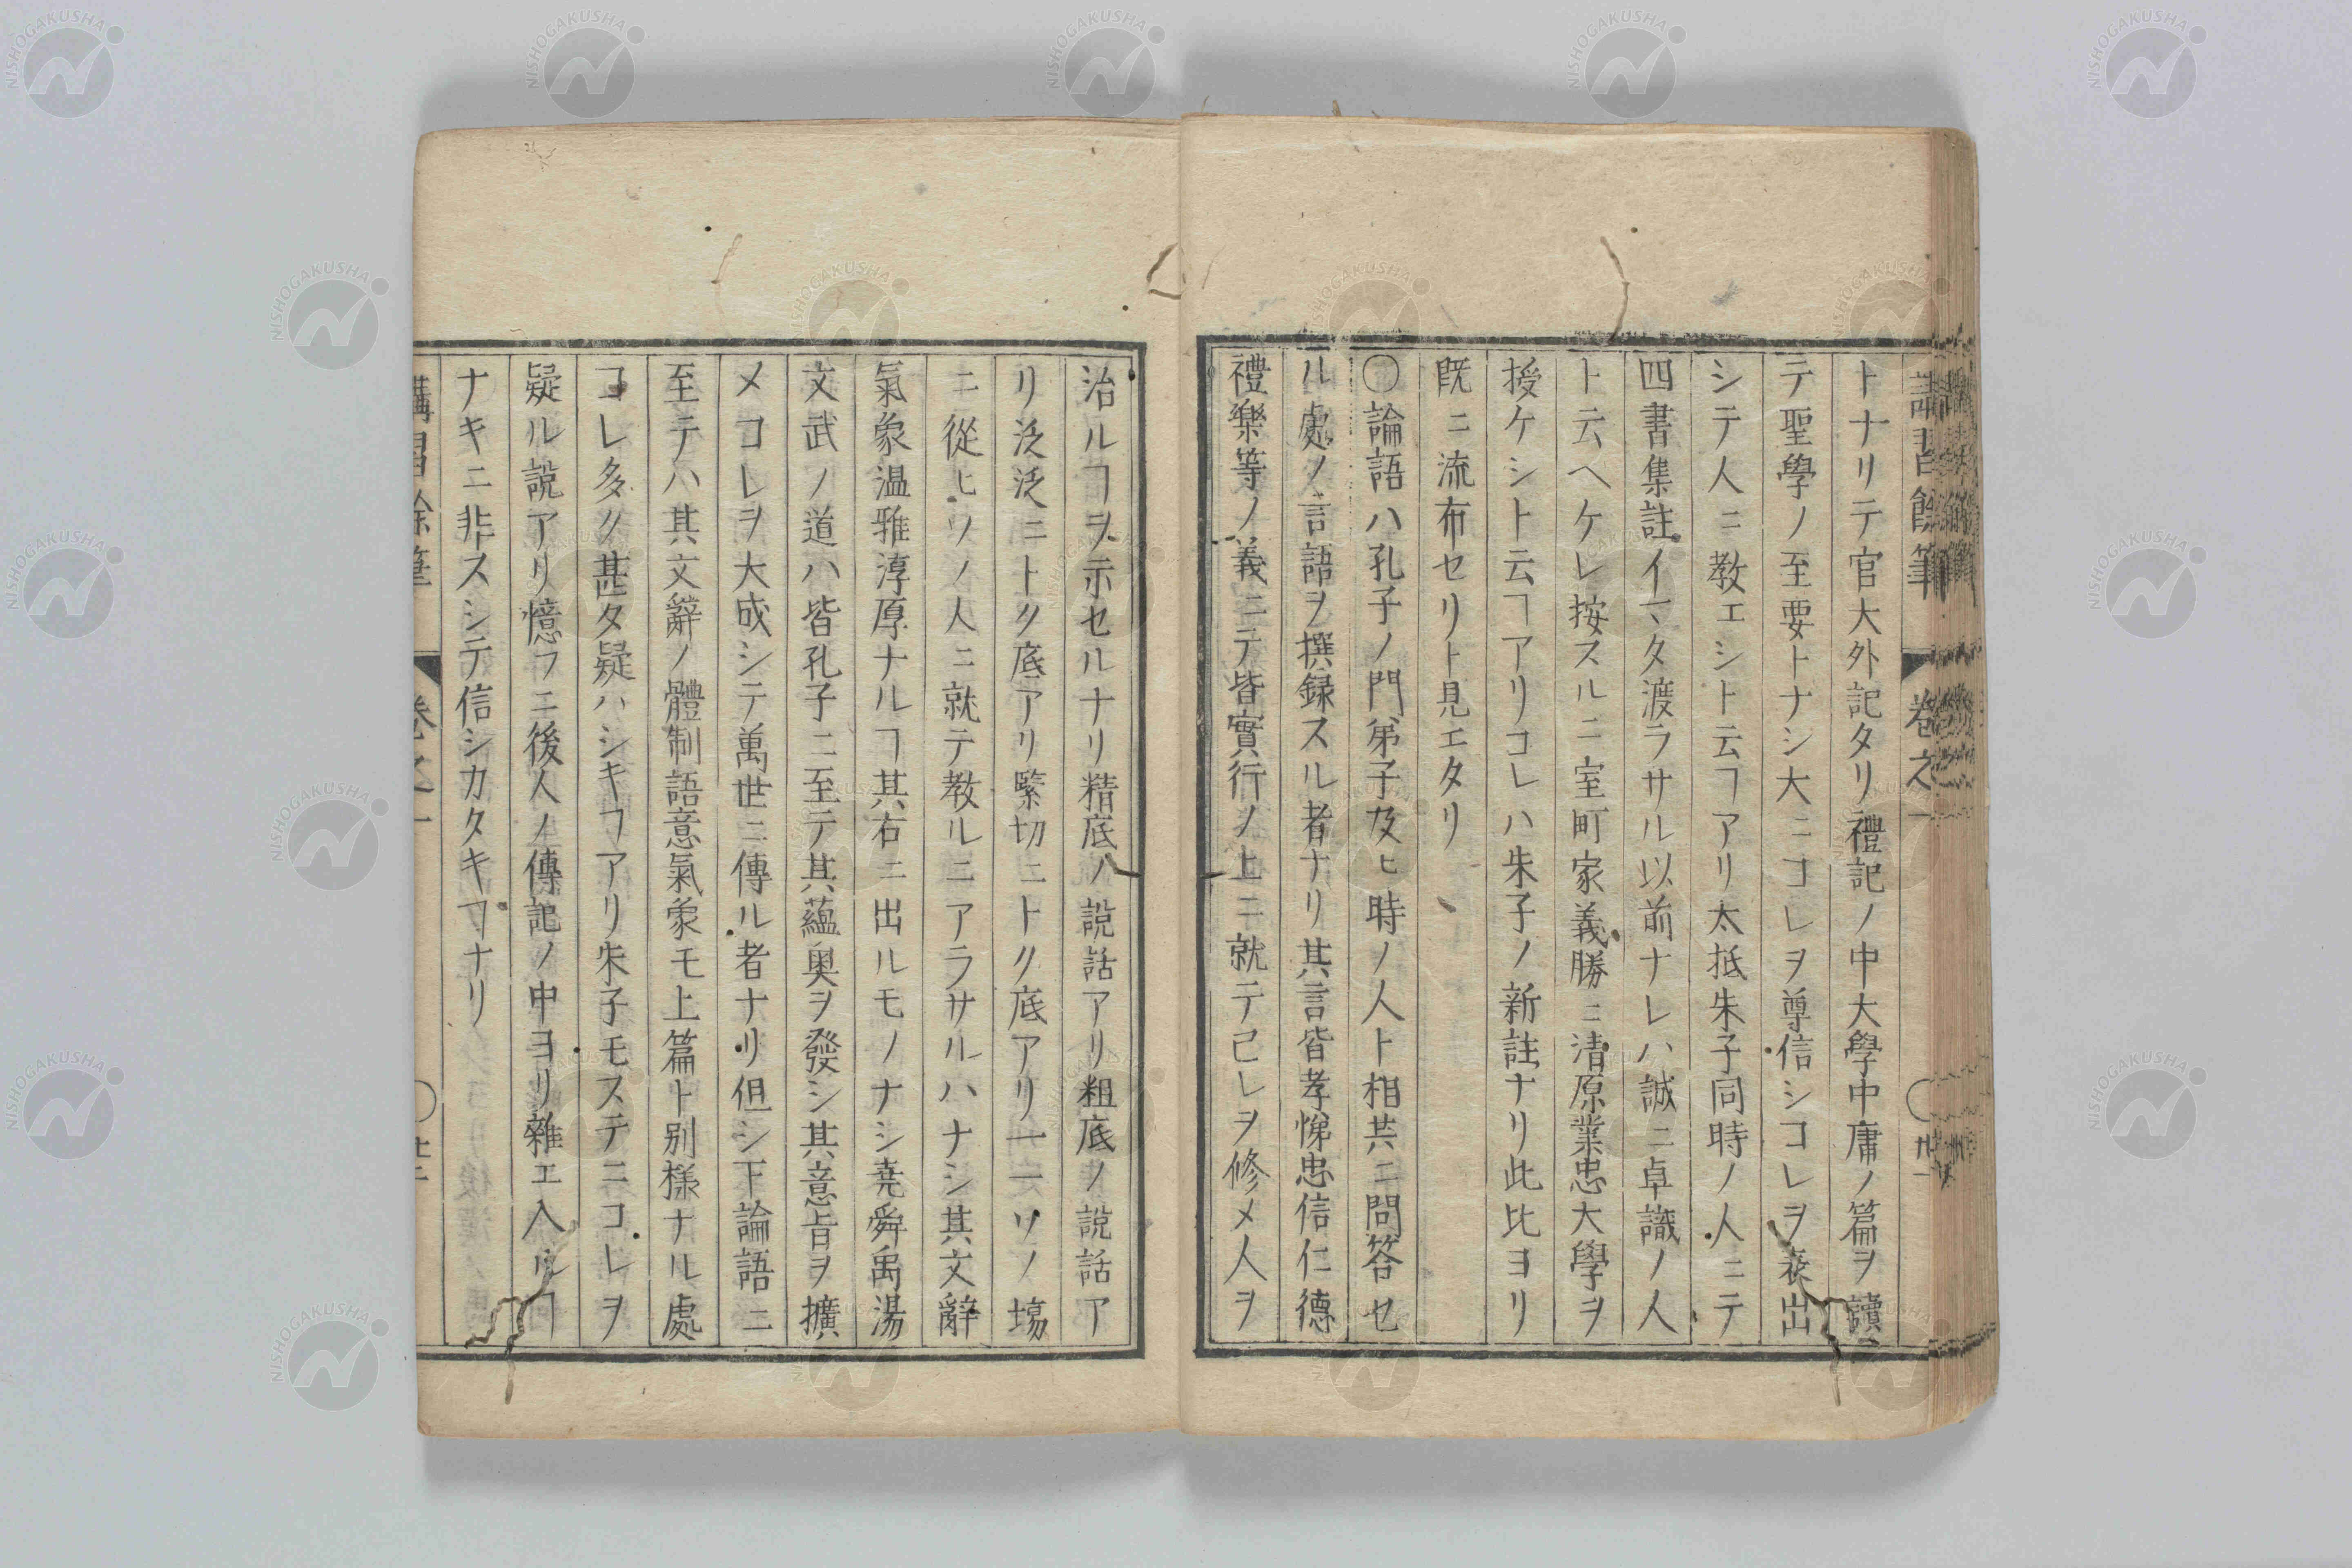 講習餘筆 卷之一 〇廿一
トナリテ官大外記タリ禮記ノ中大學中庸ノ篇ヲ讀
テ聖學ノ至要トナシ大ニコレヲ尊信シコレヲ表出
シテ人ニ教エシト云ヿアリ太抵朱子同時ノ人ニテ
四書集註イマタ渡ラサル以前ナレハ誠ニ卓識ノ人
ト云ヘケレ按スルニ室町家義勝ニ清原業忠大學ヲ
授ケシト云ヿアリコレハ朱子ノ新註ナリ此比ヨリ
既ニ流布セリト見エタリ
〇論語ハ孔子ノ門弟子及ヒ時ノ人ト相共ニ問答セ
ル處ノ言語ヲ撰録スル者ナリ其言皆孝悌忠信仁德
禮樂等ノ義ニテ皆實行ノ上ニ就テ己レヲ修メ人ヲ
治ルヿヲ示セルナリ精底ノ說話アリ粗底ノ說話ア
リ泛泛ニトク底アリ緊切ニトク底アリ一一ソノ塲
ニ從ヒソノ人ニ就テ教ルニアラサルハナシ其文辭
氣象温雅淳厚ナルヿ其右ニ出ルモノナシ堯舜禹湯
文武ノ道ハ皆孔子ニ至テ其蘊奥ヲ發シ其意旨ヲ擴
メコレヲ大成シテ萬世ニ傳ル者ナリ但シ下論語ニ
至テハ其文辭ノ體制語意氣象モ上篇ト別様ナル處
コレ多ク甚タ疑ハシキヿアリ朱子モステニコレヲ
疑ル說アリ憶フニ後人ノ傳記ノ中ヨリ雜エ入ルヿ
ナキニ非スシテ信シカタキヿナリ
講習餘筆 卷之一
NISHOGAKUSHA